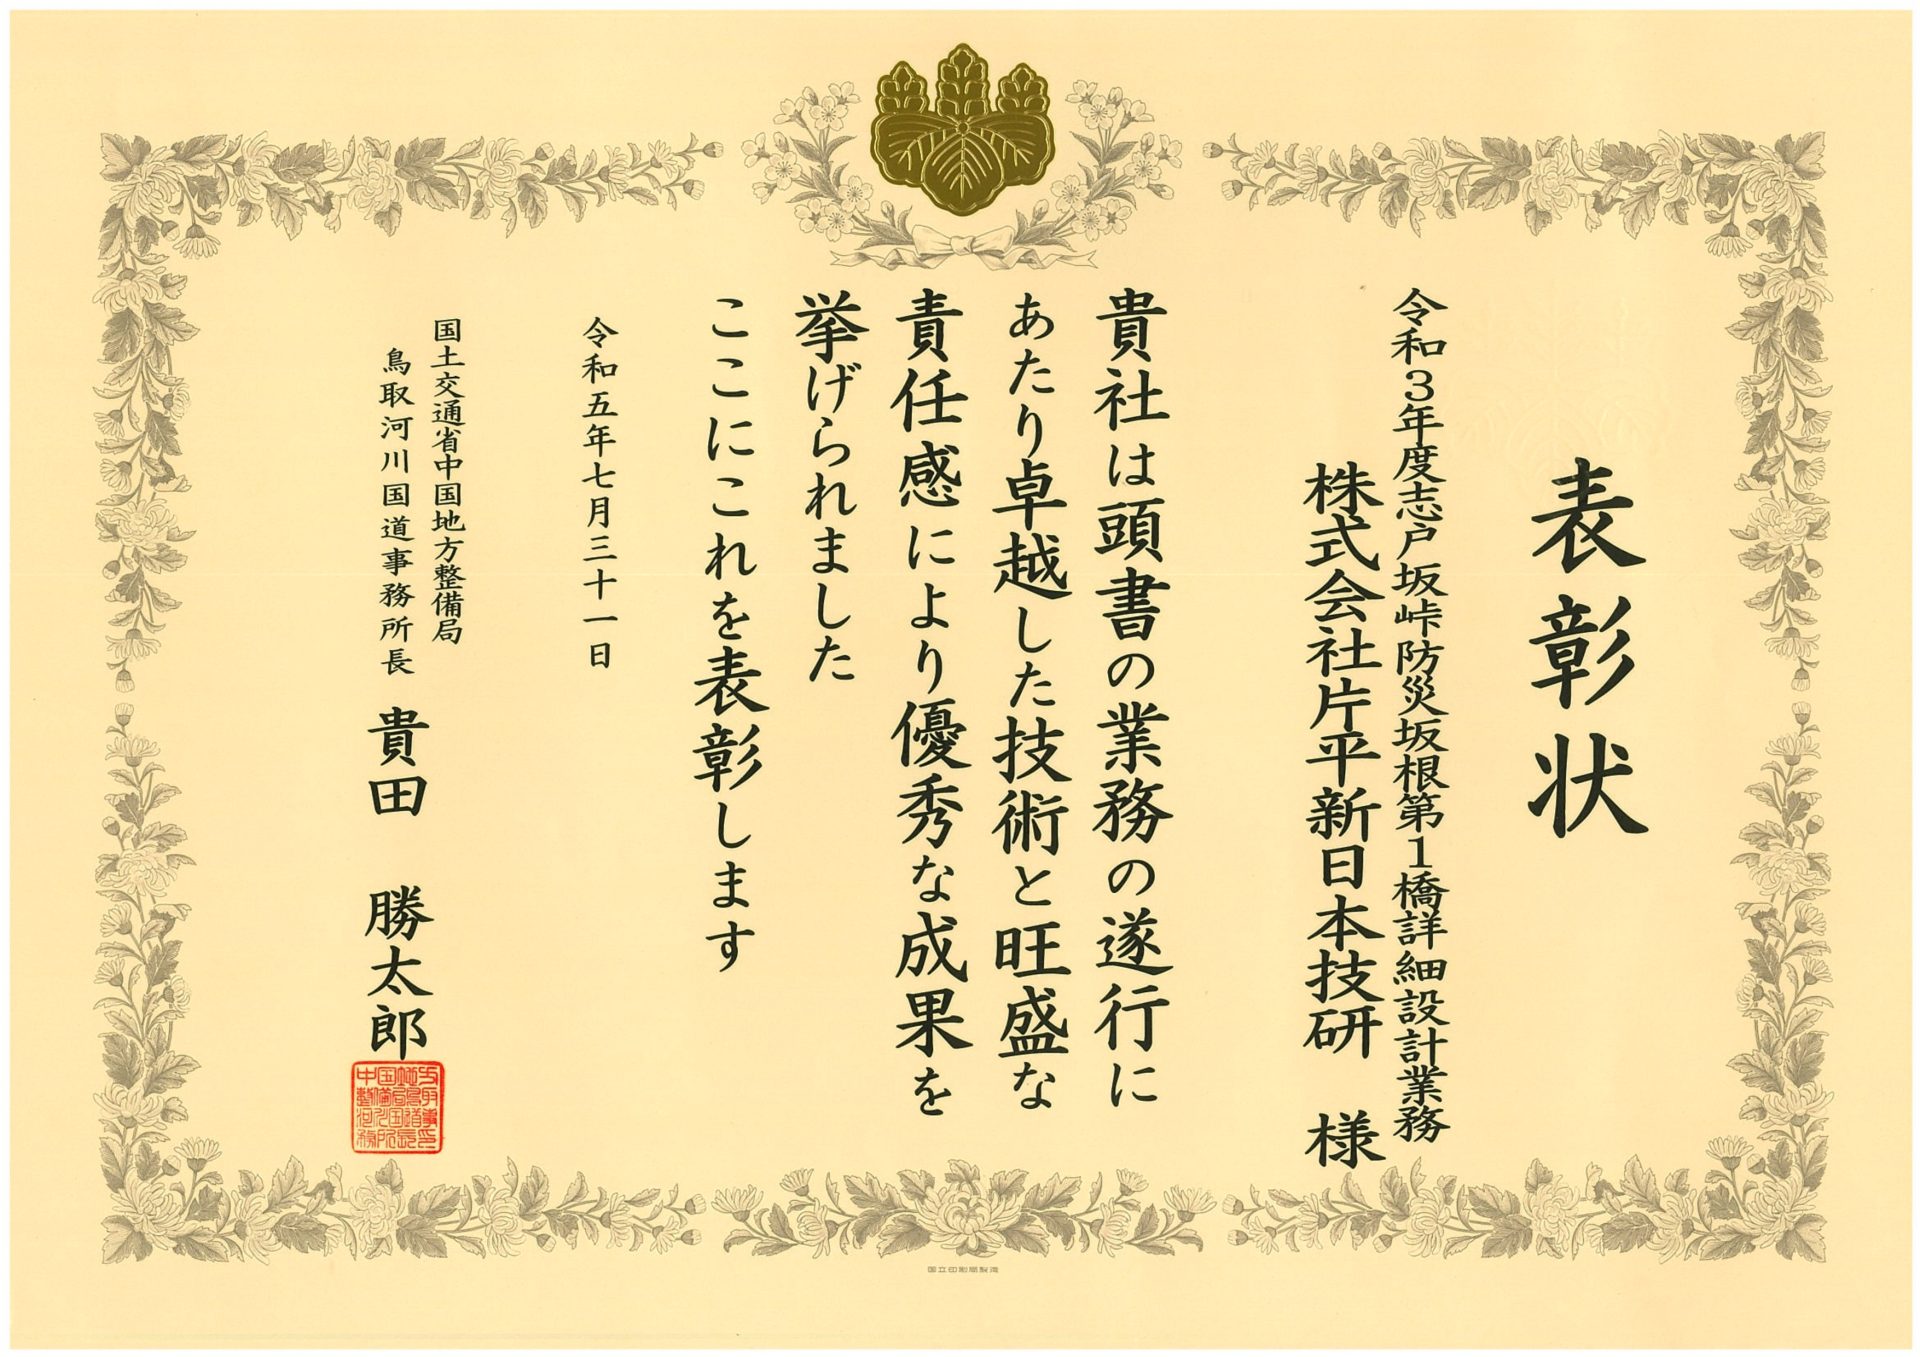 表彰状
令和３年度志戸坂峠防災坂根第１橋詳細設計業務
株式会社片平新日本技研　様
貴社は頭書の業務の遂行に
あたり卓越した技術と旺盛な
責任感により優秀な成果を
挙げられました
ここにこれを表彰します
令和五年七月三十一日
国土交通省中国地方整備局
鳥取河川国道事務所長　貴田　勝太郎
国立印刷局製造